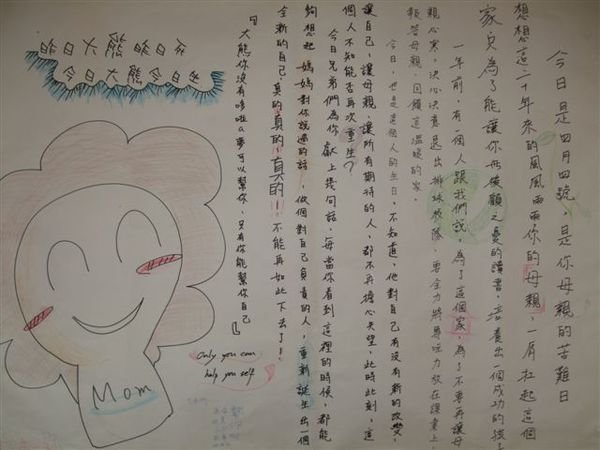 今日是四月四號，是你母親的苦難日
想想這二十年來的風風雨雨你的母親，一肩扛起這個
家只為了能讓你無後顧之憂的讀書，培養出一個成功的孩子
一年前，有一個人跟我們說，為了這個家，為了不要再讓母
親心寒，決心決意退出排球校隊，要全力將專注力放在課業上，
報答母親，回饋這溫暖的家。
今日，也是這個人的生日，不知道，他對自己有沒有新的改變，
讓自己，讓母親，讓所有期待的人，都不再擔心失望，此時此刻，這
個人不知能否再次重生？
今日兄弟們為你獻上幾句話，每當你看到這裡的時候，都能
夠想起媽媽對你說過的話，做個對自己負責的人，重新誕生出一個
全新的自己，真的！真的！真的！不能再如此下去了！
『大熊你沒有哆啦a夢可以幫你，只有你能幫你自己』
昨日大熊昨日死
今日大熊今日生
Only you can
help you self
Mom